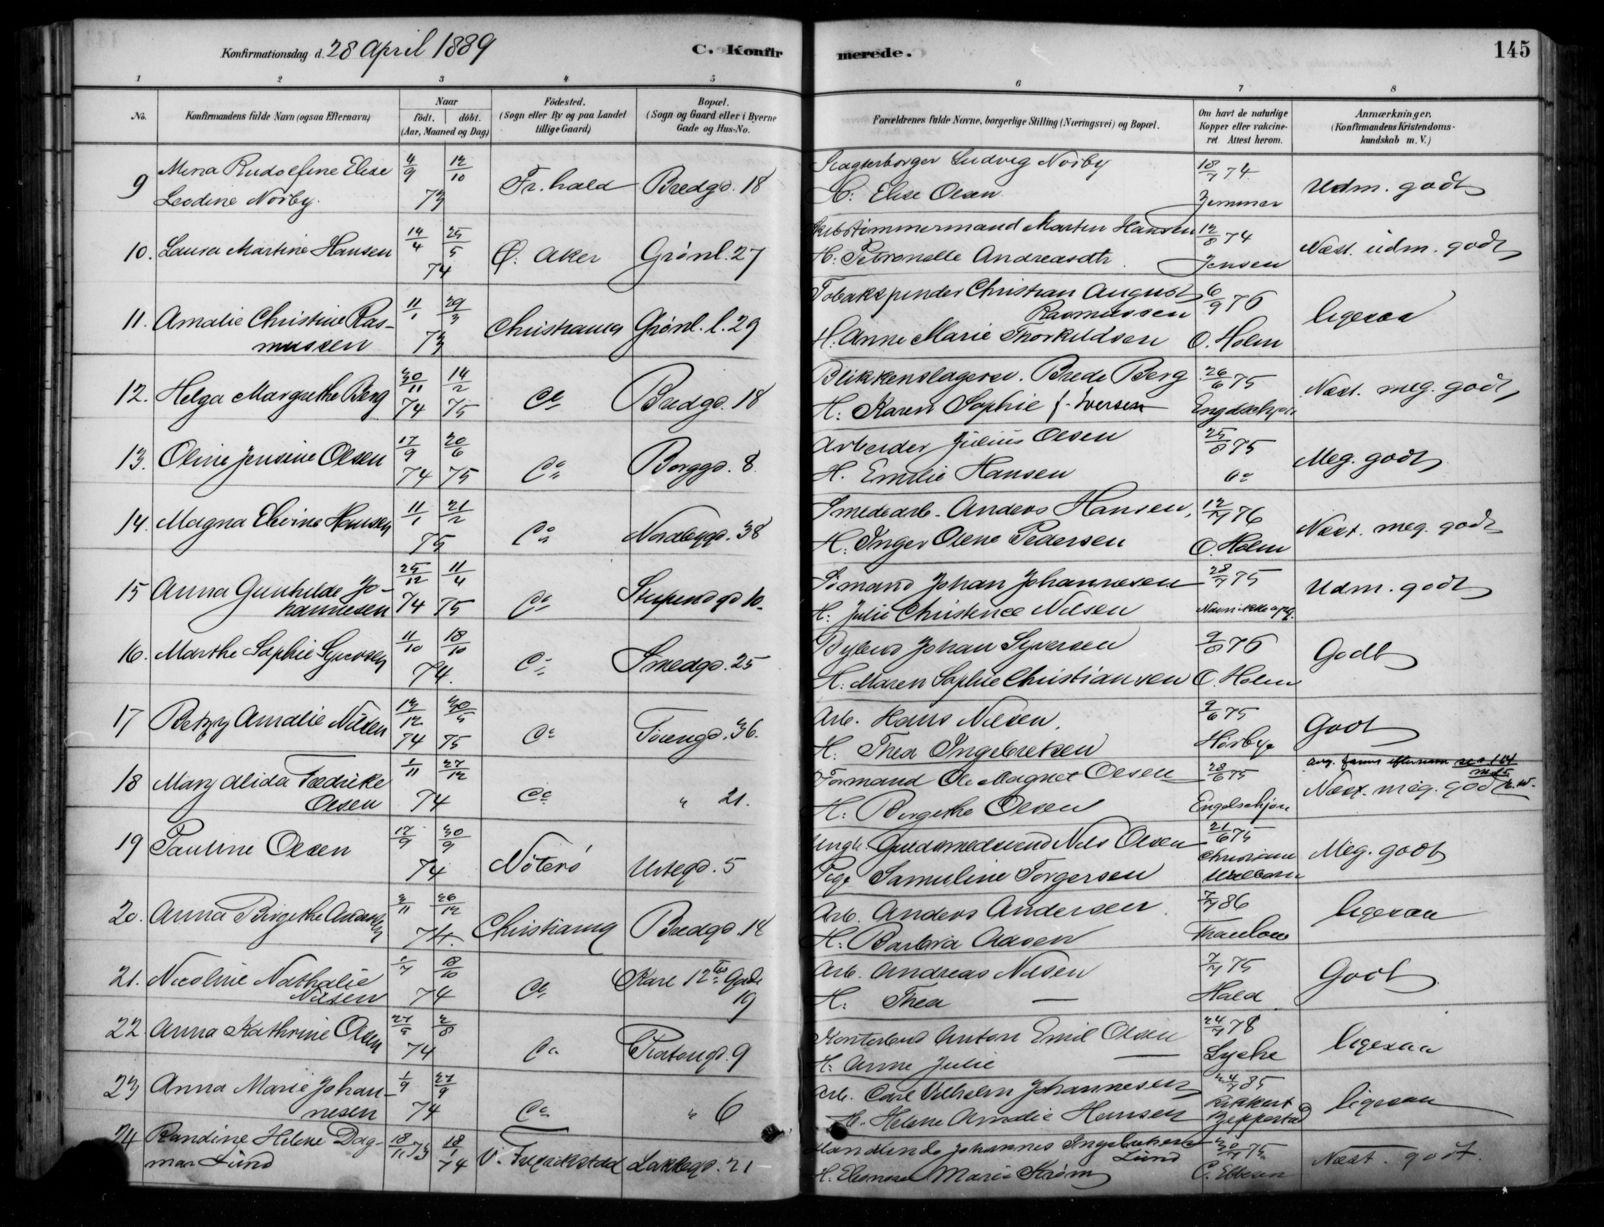 Konfirmationsdag d. 28 April 1889
C. Konfir
merede.
145
1 2 3 4 5 6 7 8
No.
Konfirmandens fulde Navn (ogsaa Efternavn)
Naar
født. døbt.
(Aar, Maaned og Dag)
Fødested.
(Sogn eller By og paa Landet
tillige Gaard)
Bopæl.
(Sogn og Gaard eller i Byerne
Gade og Hus-No.
Forældrenes fulde Navne, borgerlige Stilling (Næringsvei) og Bopæl.
Om havt de naturlige
Kopper eller vakcine-
ret Attest herom.
Anmærkninger.
(Konfirmandens Kristendoms-
kundskab m. V.)
9 Mina Rudolfine Elise 4/9 12/10 Fr.hald Bredgd. 18 Ludvig Norby 18/7 74 Udm. godt
Leodine Norby. 73 H. Elise Olsen
10. Laura Martine Hansen 14/4 25/5 Ø. Aker Grønl. 27 Martin Hansen 12/8 74 Næst. udm. godt
74 H. Petronelle Andreasdtr. Jensen
11. Amalie Christine Ras- 11/1 29/3 Christiania Grønl. l. 29 Tobakspinder Christian August 6/9 76 ligesaa
mussen 73 Rasmussen
H. Anne Marie Thorkildsen O. Holm
12. Helga Margrethe Berg 30/11 14/2 do Bredgd. 18 Blikkenslagersv. Brede Berg 26/6 75 Næst. meg. godt
74 75 H. Karen Sophie f. Iversen
13. Oline Jensine Olsen 17/9 20/6 do Borggd. 8 Arbeider Julius Olsen 25/8 75 Meg. godt
74 75 H. Emilie Hansen do
14. Magna Elvine Hansen 11/1 21/2 do 38 Smedearb. Anders Hansen, 12/9 76 Næst. meg. godt
75 H. Inger Olene Pedersen O. Holm
15 Anna Gunhilde Jo- 25/12 11/4 do 10 Sømand Johan Johannesen 28/7 75 Udm. godt
hannesen 74 75 H. Julie Christence Nilsen
16. Marthe Sophie Syversen 11/10 18/10 do Smedgd. 25 Bybud Johan Syversen 76 Godt
74. H. Maren Sophie Christiansen O. Holm
17 Betzy Amalie Nilsen 12/12 do 36. Arb. Hans Nilsen. 2/6 75 Godt
74 75 H. Thea Ingebretsen Horbye
18 Mary Alida Fredrikke 1/11 27/12 do " 21. Formand Ole Magnus Olsen 28/6 75 Næst. meg. godt
Olsen 74 H. Birgithe Olsen Engelschjøn
19 Pauline Olsen 17/9 30/9 Nøterø Urtegd. 5 Ungk. Guldsmedsvend Nils Olsen 21/6 75 Meg. godt
74 Pige Samuline Torgersen
20. Anna Birgithe Andersen 2/11 26/12 Christiania Bredgd. 14 Arb. Anders Andersen 7/7 86 ligesaa
74. H. Barbra Aasen Thaulow
21. Nicoline Nathalie 1/7 18/10 do Karl 12tes Gade Arb. Andreas Nilsen 7/7 75 Godt
Nilsen 74 19 H. Thea — Hald
22 Anna Kathrine Olsen 27/5 2/8 do 9 Kontorbud Anton Emil Olsen 24/7 78 ligesaa
74 H. Anne Julie — Lyche
23 Anna Marie Johan- 1/9 27/9 do " 6 Arb. Carl Vilhelm Johannesen 85 ligesaa
nesen 74 H. Helene Amalie Hansen
24 Randine Helene Dag- 18/11 73 18/1 74 V. Fredrikstad Lakkegd. 21 Handlende Johannes 75 Næst. godt.
mar Lund Lund
H. Marie Strøm